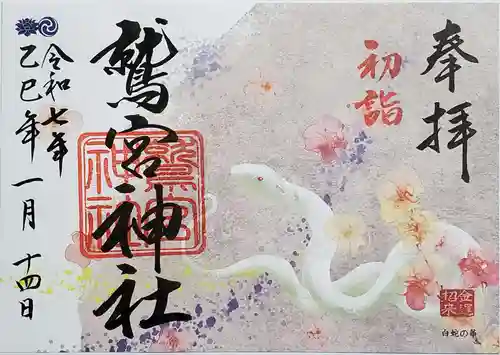 奉拝
初詣
鷲宮神社
鷲宮神社
令和七年
乙巳年 一月 十四日
金運招来